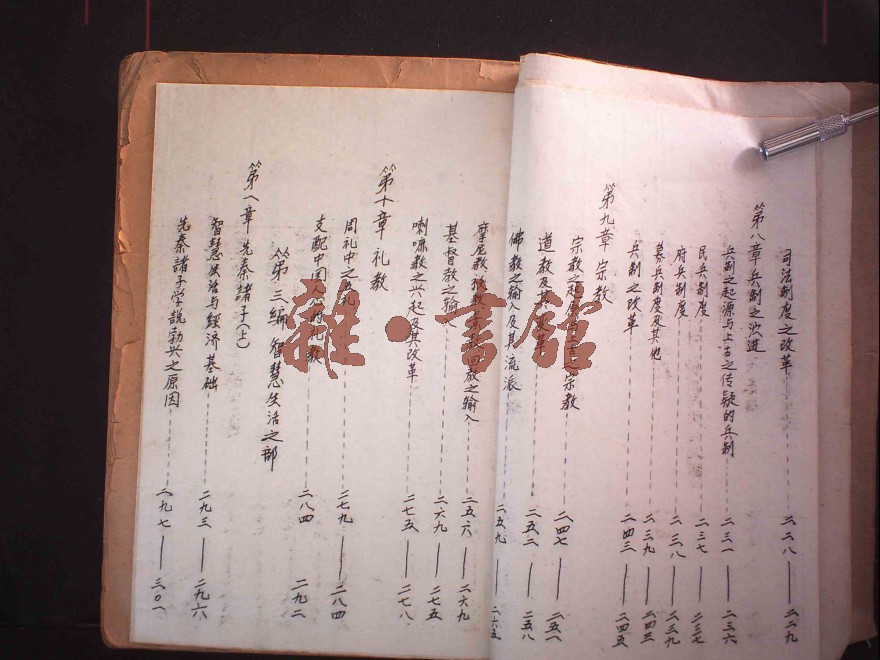 司法制度之改革 二二八——二二九
第八章 兵制之演进
兵制之起源与上古之传疑的兵制 二三一——二三六
民兵制度 二三七——二三七
府兵制度 二三八——二三九
募兵制度及其他 二三九——二四三
兵制之改革 二四三——二四五
第九章 宗教
宗教 宗教 二四七——二五一
道教及其 二五二——二五八
佛教之输入及其流派 二五九——二六五
摩尼教 回教之输入 二五六——二六九
基督教之输入 二六九——二七五
喇嘛教之兴起及其改革 二七五——二七八
第十章 礼教
周礼中之 二七九——二八四
支配中国人 的礼教 二八四 二九二
第三编 智慧生活之部
第一章 先秦諸子(上)
智慧生活与經济基础 二九三——二九六
先秦諸子学説勃兴之原因 二九七——三〇一
雜·書館